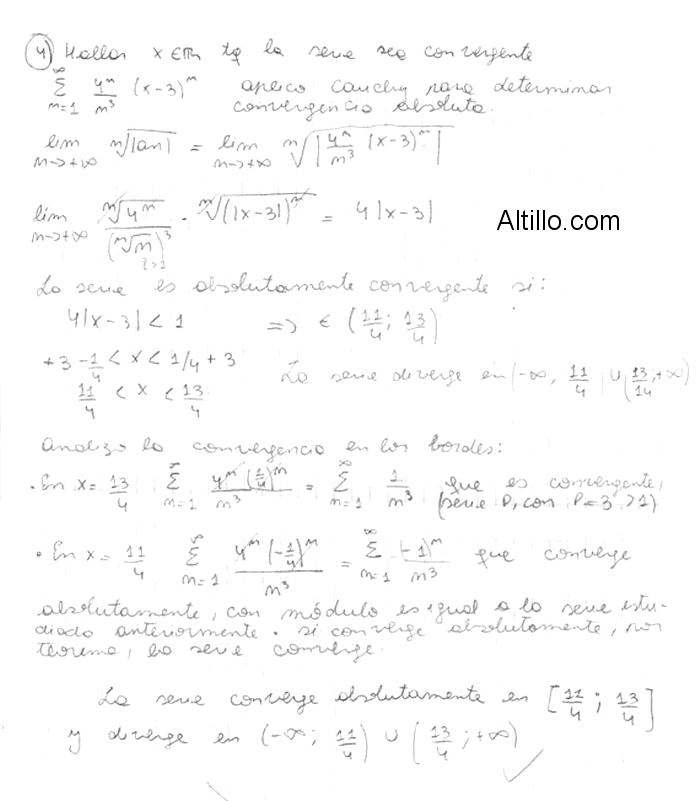 4) Hallar x ∈ R tq la serie sea convergente
∞ Σ n=1 4^n/n^3 (x-3)^n aplico Cauchy para determinar
convergencia absoluta.
lim n->+∞ n√|an| = lim n->+∞ n√|4^n/n^3 (x-3)^n|
lim n->+∞ n√4^n/(n√n)^3 · n√(|x-3|)^n = 4|x-3|
Altillo.com
La serie es absolutamente convergente si:
4|x-3| < 1 => ∈ (11/4; 13/4)
+3 -1/4 < x < 1/4 + 3
11/4 < x < 13/4
La serie diverge en (-∞, 11/4) ∪ (13/14; +∞)
Analizo la convergencia en los bordes:
· En x = 13/4 ∞ Σ n=1 4^n (1/4)^n/n^3 = ∞ Σ n=1 1/n^3 que es convergente,
(serie P, con P=3 >1)
· En x = 11/4 ∞ Σ n=1 4^n (-1/4)^n/n^3 = ∞ Σ n=1 (-1)^n/n^3 que converge
absolutamente, con módulo es igual a la serie estu-
diada anteriormente. si converge absolutamente, por
teorema, la serie converge.
La serie converge absolutamente en [11/4; 13/4]
y diverge en (-∞; 11/4) ∪ (13/4; +∞)